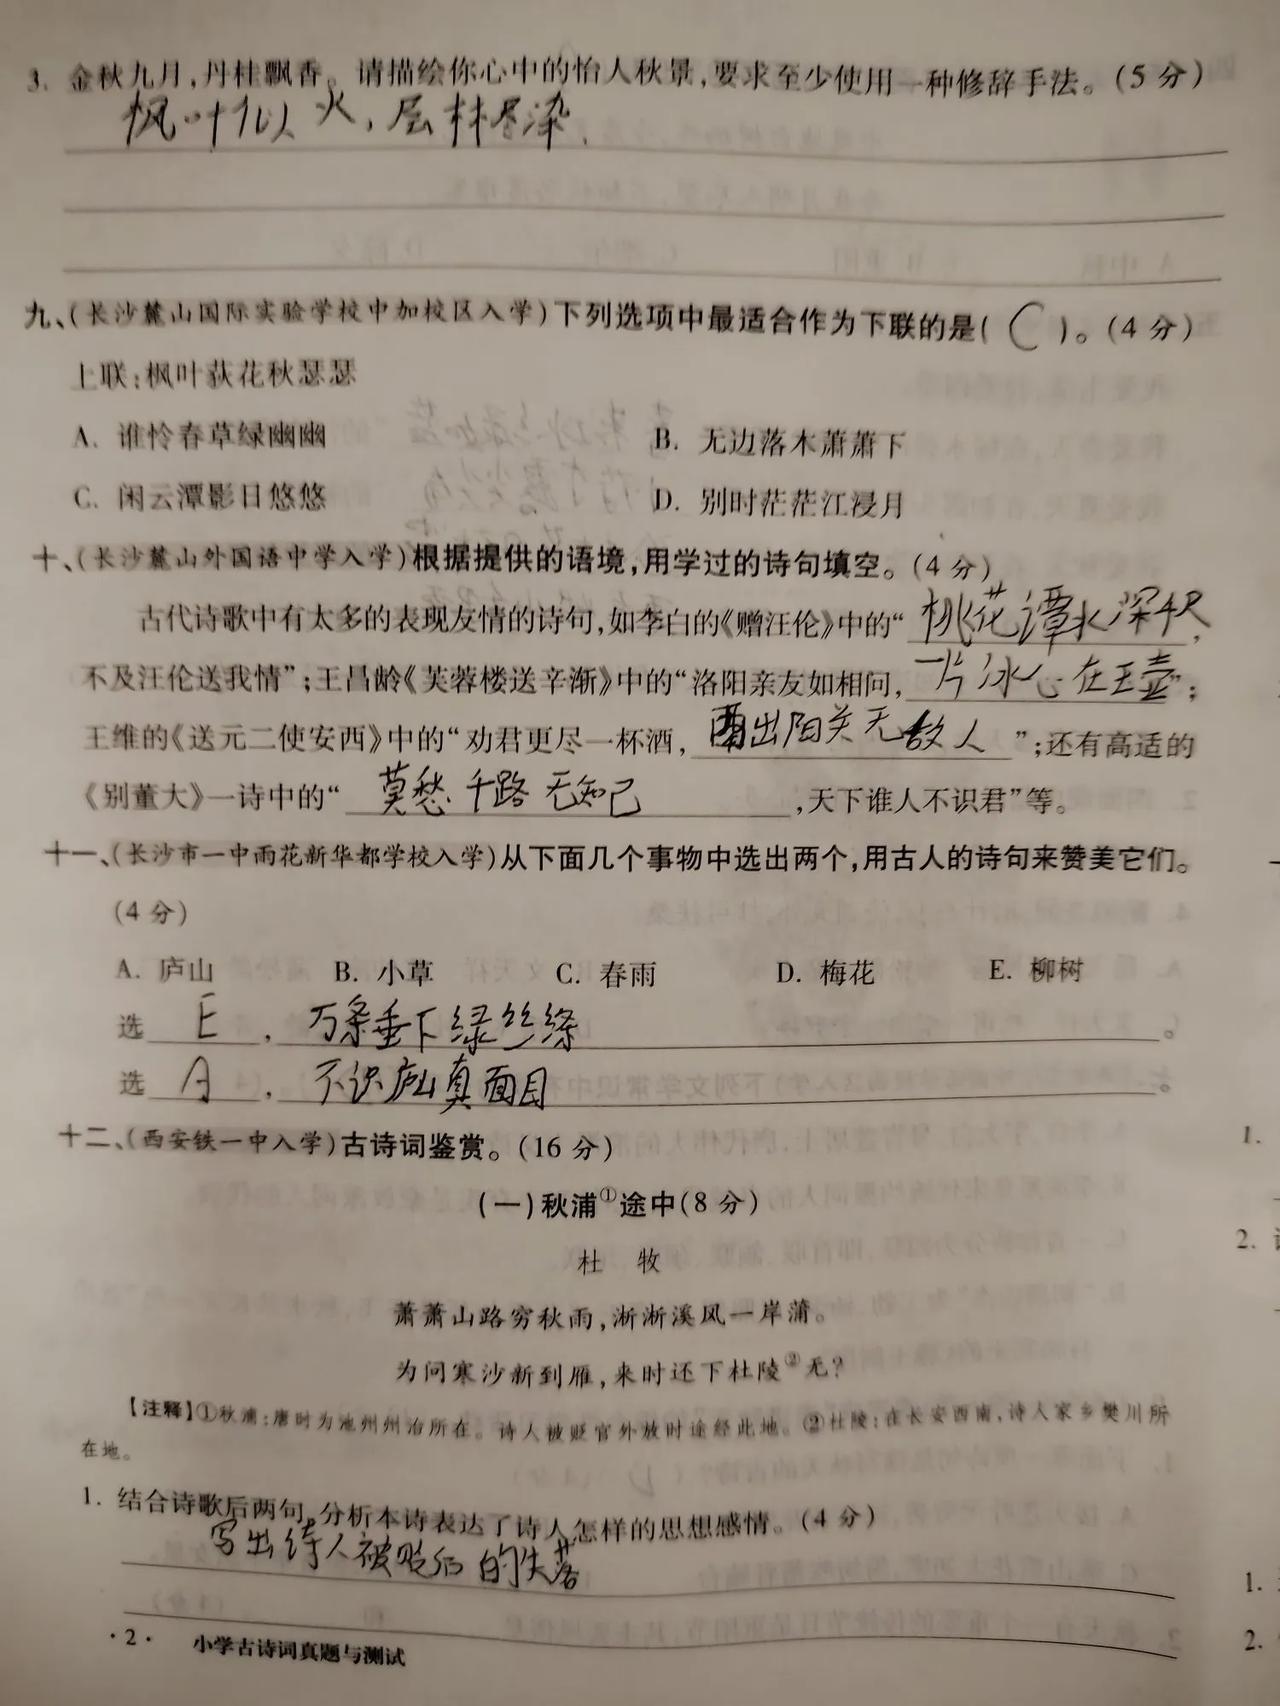 3. 金秋九月,丹桂飘香。请描绘你心中的怡人秋景,要求至少使用一种修辞手法。(5分)
枫叶似火,层林尽染
九、(长沙麓山国际实验学校中加校区入学)下列选项中最适合作为下联的是( C )。(4分)
上联:枫叶荻花秋瑟瑟
A. 谁怜春草绿幽幽 B. 无边落木萧萧下
C. 闲云潭影日悠悠 D. 别时茫茫江浸月
十、(长沙麓山外国语中学入学)根据提供的语境,用学过的诗句填空。(4分)
古代诗歌中有太多的表现友情的诗句,如李白的《赠汪伦》中的“桃花谭水深千尺,
不及汪伦送我情”;王昌龄《芙蓉楼送辛渐》中的“洛阳亲友如相问,一片冰心在玉壶”;
王维的《送元二使安西》中的“劝君更尽一杯酒,西出阳关无故人”;还有高适的
《别董大》一诗中的“莫愁千路无知己,天下谁人不识君”等。
十一、(长沙市一中雨花新华都学校入学)从下面几个事物中选出两个,用古人的诗句来赞美它们。
(4分)
A. 庐山 B. 小草 C. 春雨 D. 梅花 E. 柳树
选 E ,万条垂下绿丝绦。
选 A ,不识庐山真面目。
十二、(西安铁一中入学)古诗词鉴赏。(16分)
(一)秋浦①途中(8分)
杜 牧
萧萧山路穷秋雨,淅淅溪风一岸蒲。
为问寒沙新到雁,来时还下杜陵②无?
【注释】①秋浦:唐时为池州州治所在。诗人被贬官外放时途经此地。②杜陵:在长安西南,诗人家乡樊川所
在地。
1. 结合诗歌后两句,分析本诗表达了诗人怎样的思想感情。(4分)
写出诗人被贬后的失落
·2· 小学古诗词真题与测试
1.
2.
1.
2.